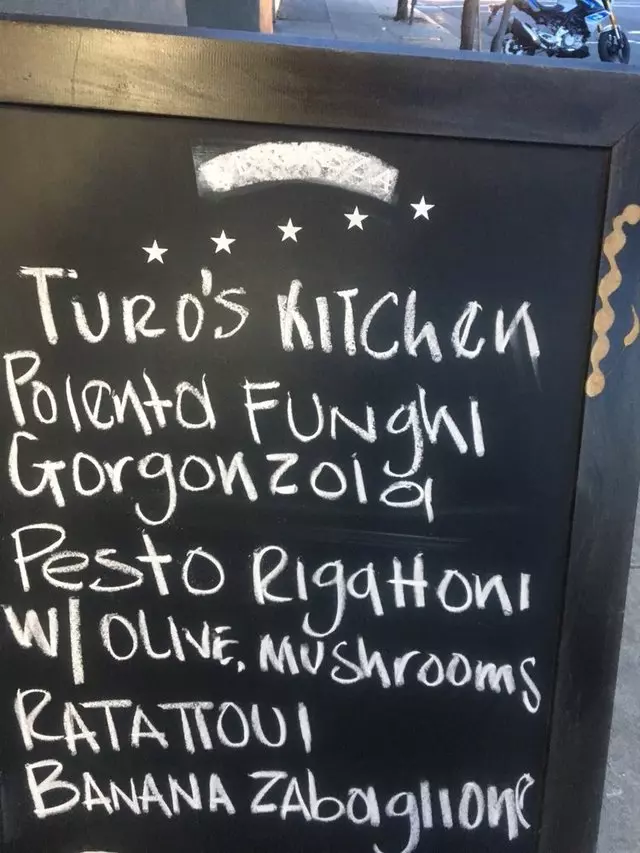 TURO'S KITChEN
Polenta FUNghI
Gorgonzola
Pesto RigattonI
W/ OLIVE, Mushrooms
RATATTOUI
BANANA ZAbaglIONE